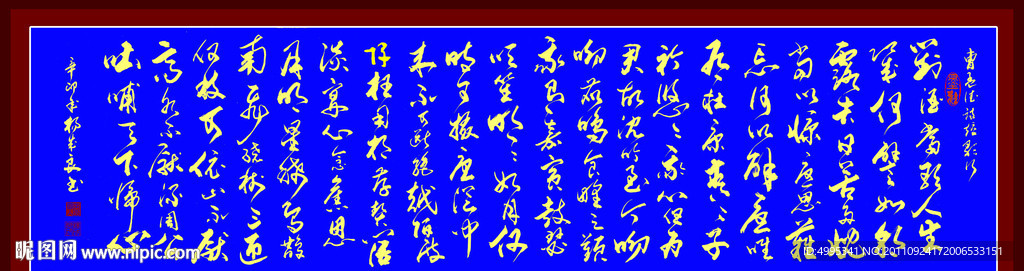 曹孟德诗短歌行
对酒当歌人生
几何譬如朝
露去日苦多慨
当以慷忧思难
忘何以解忧唯
有杜康青々子
衿悠々我心但为
君故沉吟至今呦
呦鹿鸣食野之苹
我有嘉宾鼓瑟
吹笙明々如月何
时可掇忧从中
来不可断绝越陌度
阡枉用相存契阔
谈宴心念旧恩
月明星稀乌鹊
南飞绕树三匝
何枝可依山不厌
高水不厌深周公
吐哺天下归心
辛卯年杨书
昵图网 www.nipic.com
ID:4995341 NO:20110924172006533151